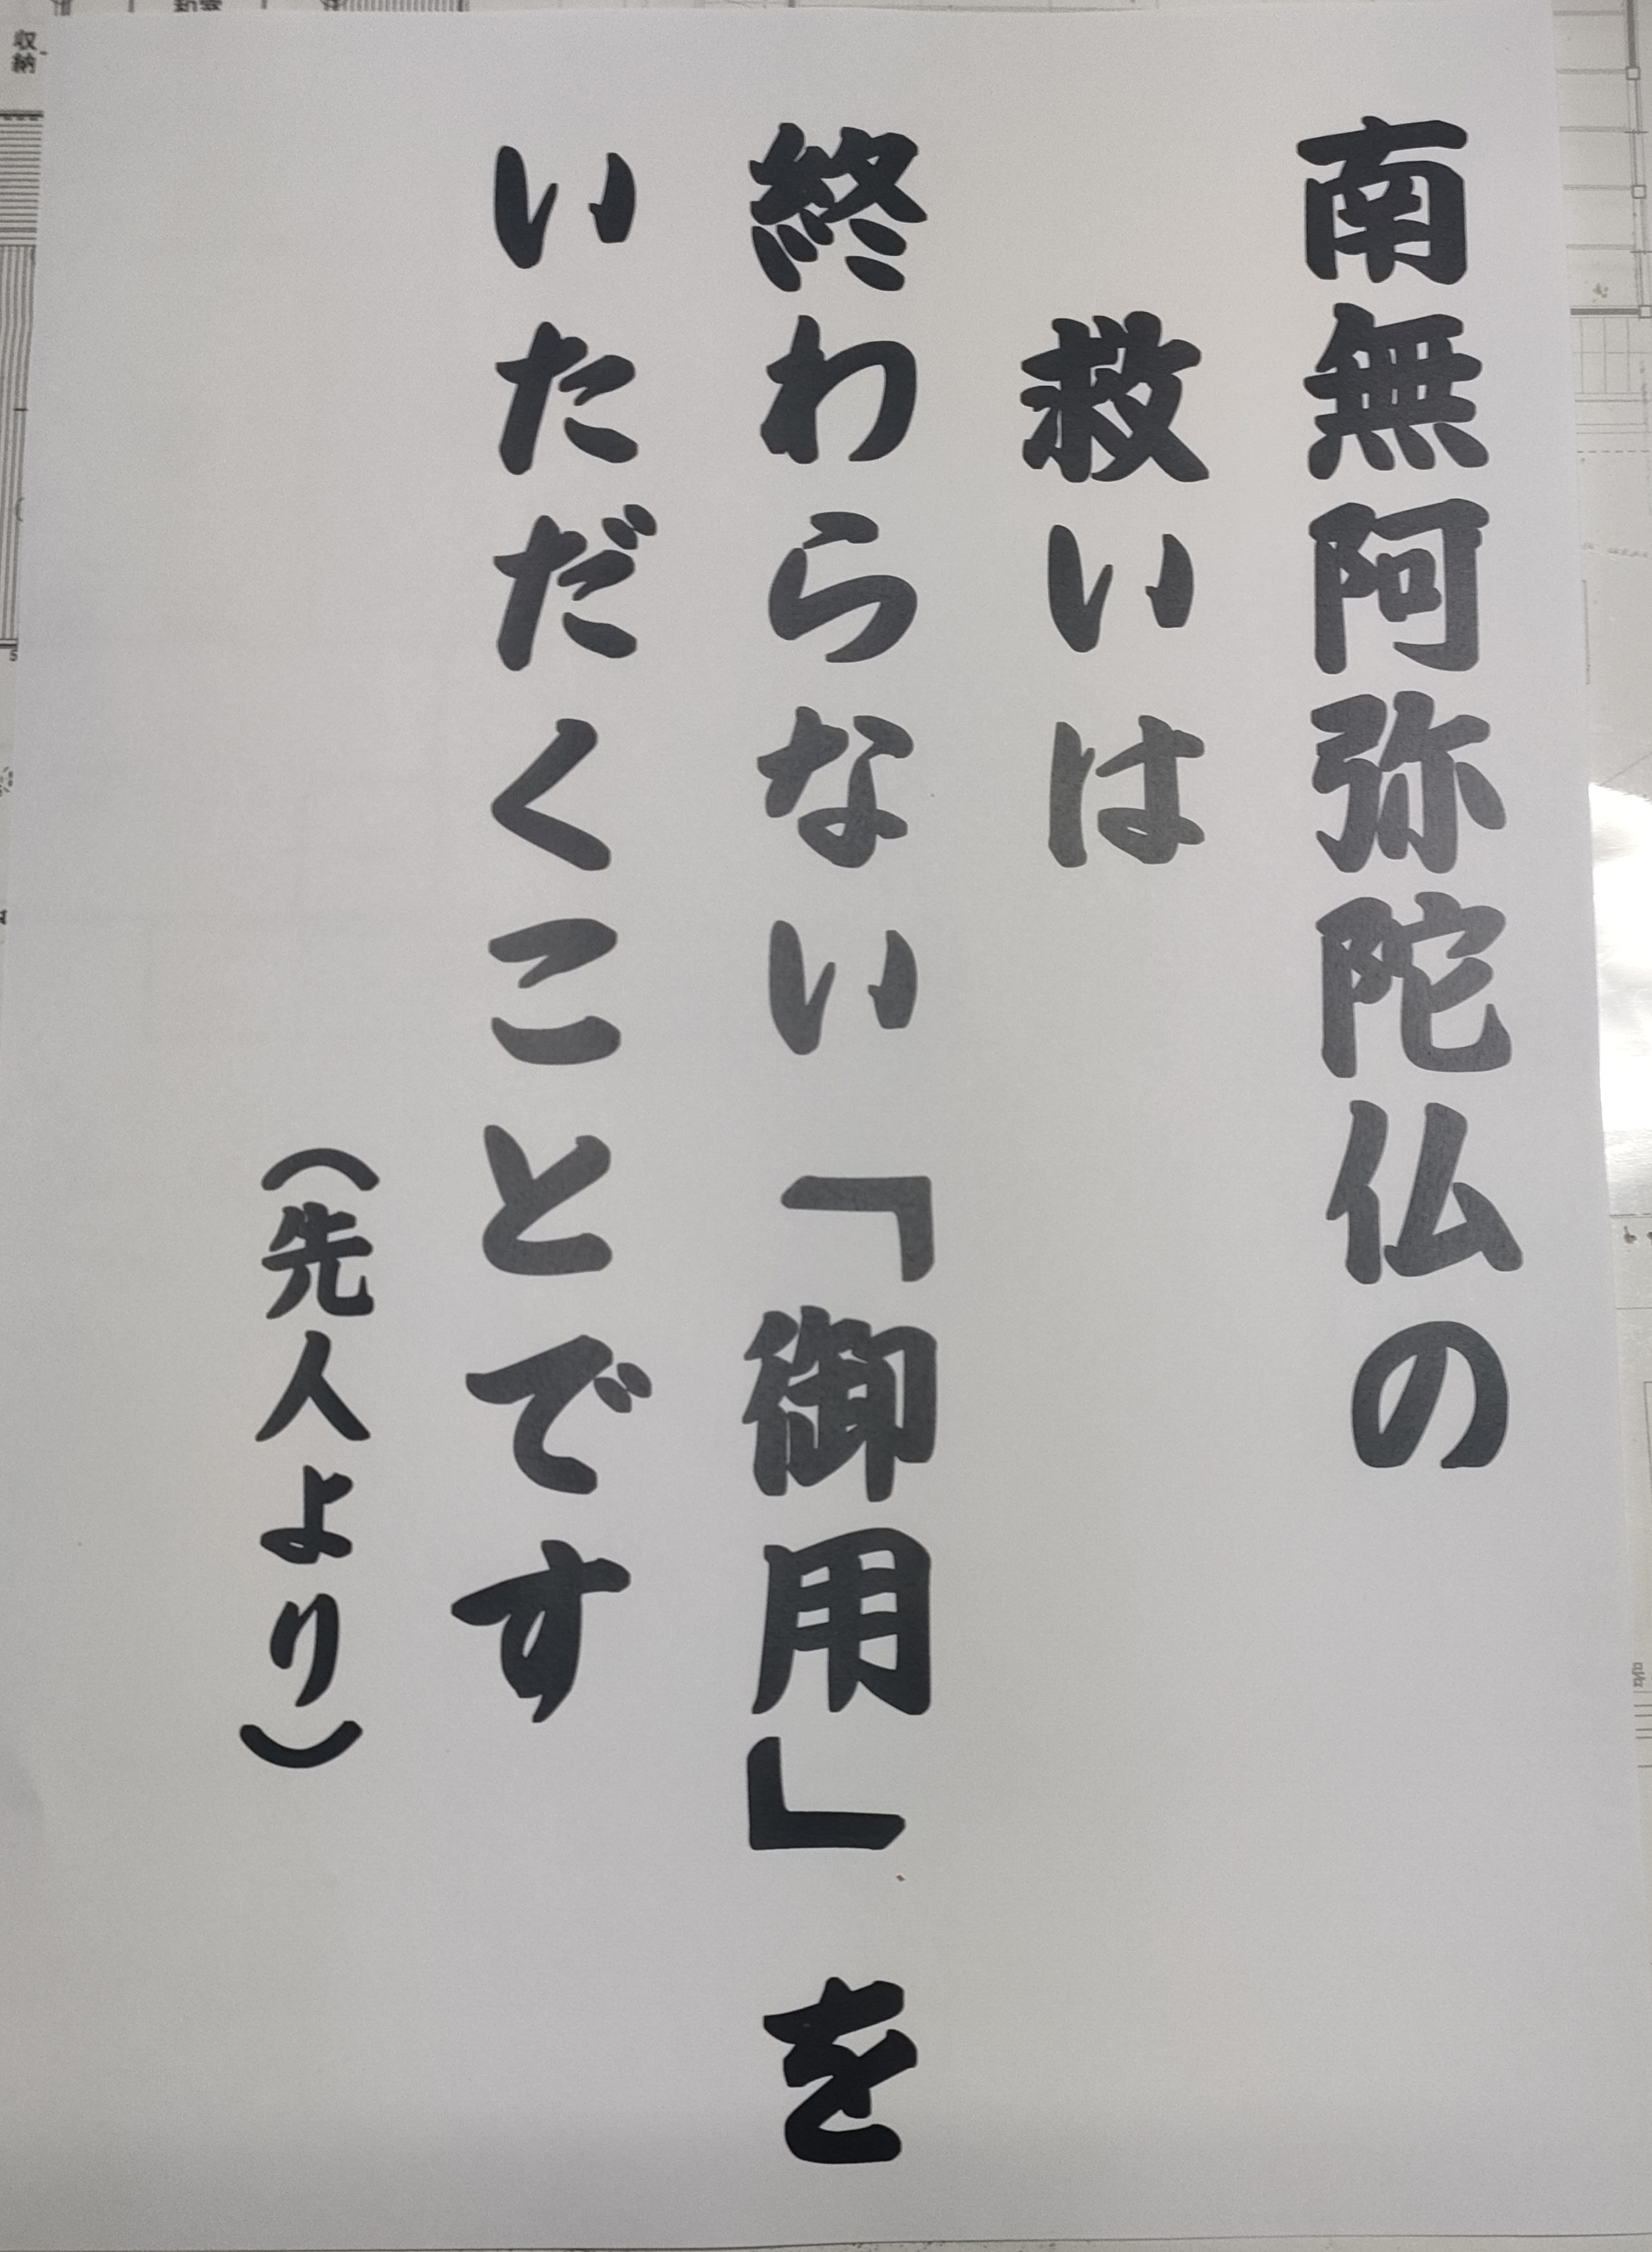 南無阿弥陀仏の
救いは
終わらない「御用」を
いただくことです
（先人より）
収納